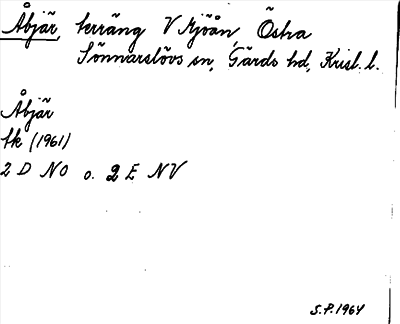 Åbjär, terräng V Mjöån, Östra
Sönnarslövs sn, Gärds hd, Krist. l.
Åbjär
tk (1961)
2 D NO o. 2 E NV
S.P. 1964